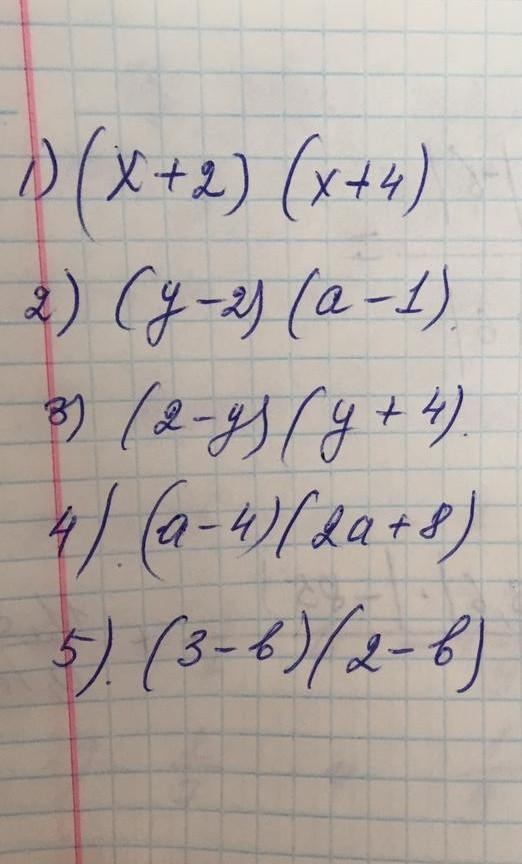 1) (x+2) (x+4)
2) (y-2) (a-1).
3) (2-y) (y+4).
4). (a-4)(2a+8)
5). (3-b)(2-b)